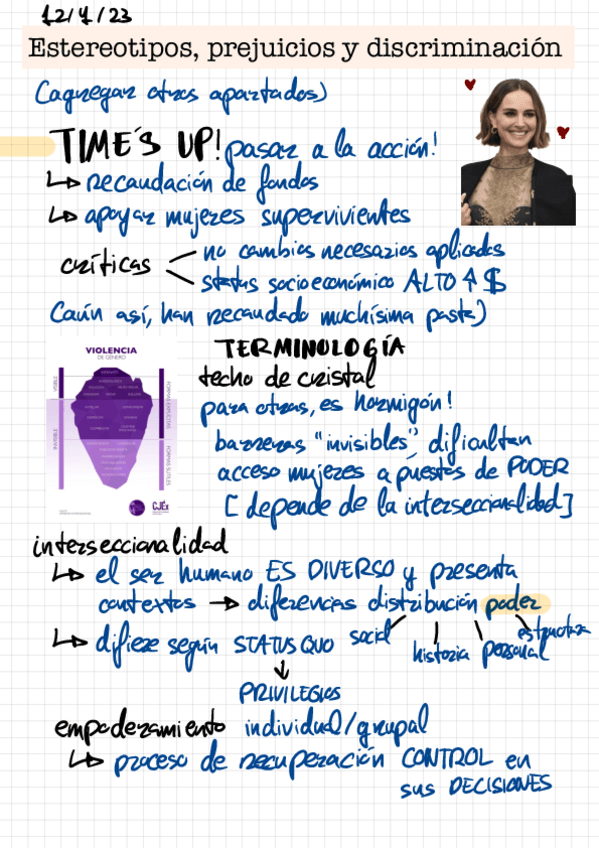 12/4/23
Estereotipos, prejuicios y discriminación
(agregar otros apartados)
TIME'S UP! pasar a la acción!
↳ recaudación de fondos
↳ apoyar mujeres supervivientes
críticas
no cambios necesarios aplicados
status socioeconómico ALTO ↑ $
(aún así, han recaudado muchísima pasta)
VIOLENCIA
DE GÉNERO
VISIBLE
INVISIBLE
CJEx
TERMINOLOGÍA
techo de cristal
para otras, es hormigón!
barreras "invisibles", dificultan
acceso mujeres a puestos de PODER
[depende de la interseccionalidad]
interseccionalidad
↳ el ser humano ES DIVERSO y presenta
contextos → diferencias distribución poder
social
historia
personal
estructura
↳ difiere según STATUS QUO
↓
PRIVILEGIOS
empoderamiento individual/grupal
↳ proceso de recuperación CONTROL en
sus DECISIONES